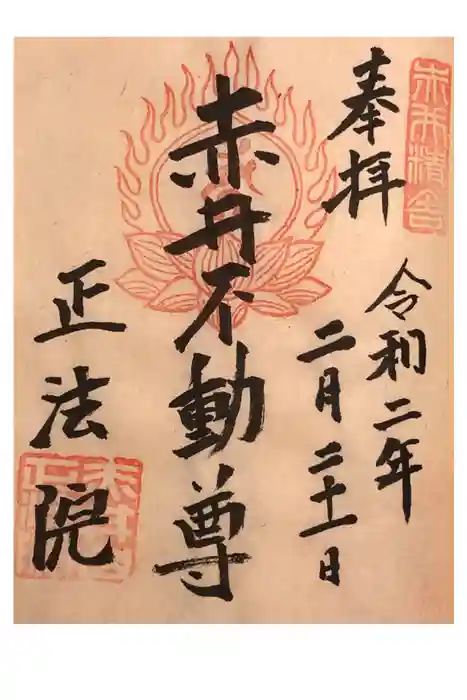 赤井精舎
奉拝
令和二年
二月二十一日
赤井不動尊
正法院